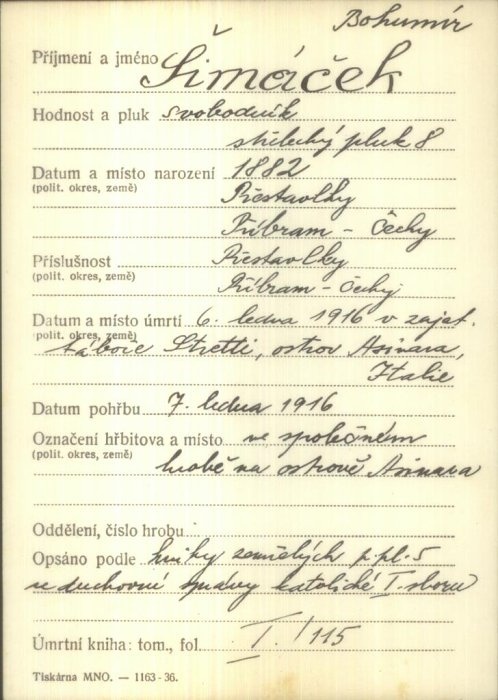 Bohumír
Příjmení a jméno Šimáček
Hodnost a pluk svobodník
střelecký pluk 8
Datum a místo narození 1882
(polit. okres, země) Přestavlky
Příbram - Čechy
Příslušnost Přestavlky
(polit. okres, země) Příbram - Čechy
Datum a místo úmrtí 6. ledna 1916 v zajat.
(polit. okres, země) táboře Stretti, ostrov Asinara,
Italie
Datum pohřbu 7. ledna 1916
Označení hřbitova a místo ve společném
(polit. okres, země) hrobě na ostrově Asinara
Oddělení, číslo hrobu
Opsáno podle knihy zemřelých p. pl. 5
duchovní správy katolické I. sboru
Úmrtní kniha: tom., fol. I. / 115
Tiskárna MNO. — 1163-36.